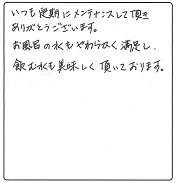 いつも定期にメンテナンスして頂き
ありがとうございます。
お風呂の水もやわらかく満足し、
飲む水も美味しく頂いております。